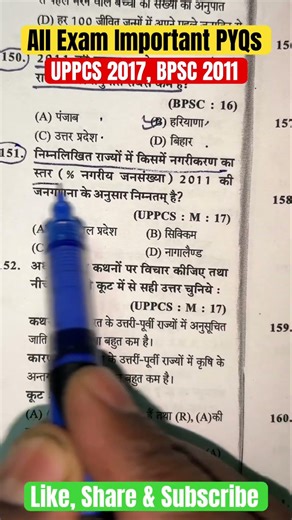 All Exam Important PYQs
UPPCS 2017, BPSC 2011
(D) हर 100 जीवित जन्मों में
150.
(BPSC : 16)
(A) पंजाब
(B) हरियाणा
(C) उत्तर प्रदेश
(D) बिहार
151. निम्नलिखित राज्यों में किसमें नगरीकरण का
स्तर (% नगरीय जनसंख्या) 2011 की
के अनुसार निम्नतम है?
(UPPCS : M : 17)
प्रदेश
(B) सिक्किम
(D) नागालैण्ड
52.
कथनों पर विचार कीजिए तथा
कूट में से सही उत्तर चुनिये :
(UPPCS : M : 17)
कथ
त के उत्तरी-पूर्वी राज्यों में अनुसूचित
जाति
बहुत कम है।
कार
के उत्तरी-पूर्वी राज्यों में कृषि के
अन्तर्ग
बहुत कम है।
कूट
(A)
तथा (R), (A)की
158
159.
160.
Like, Share & Subscribe